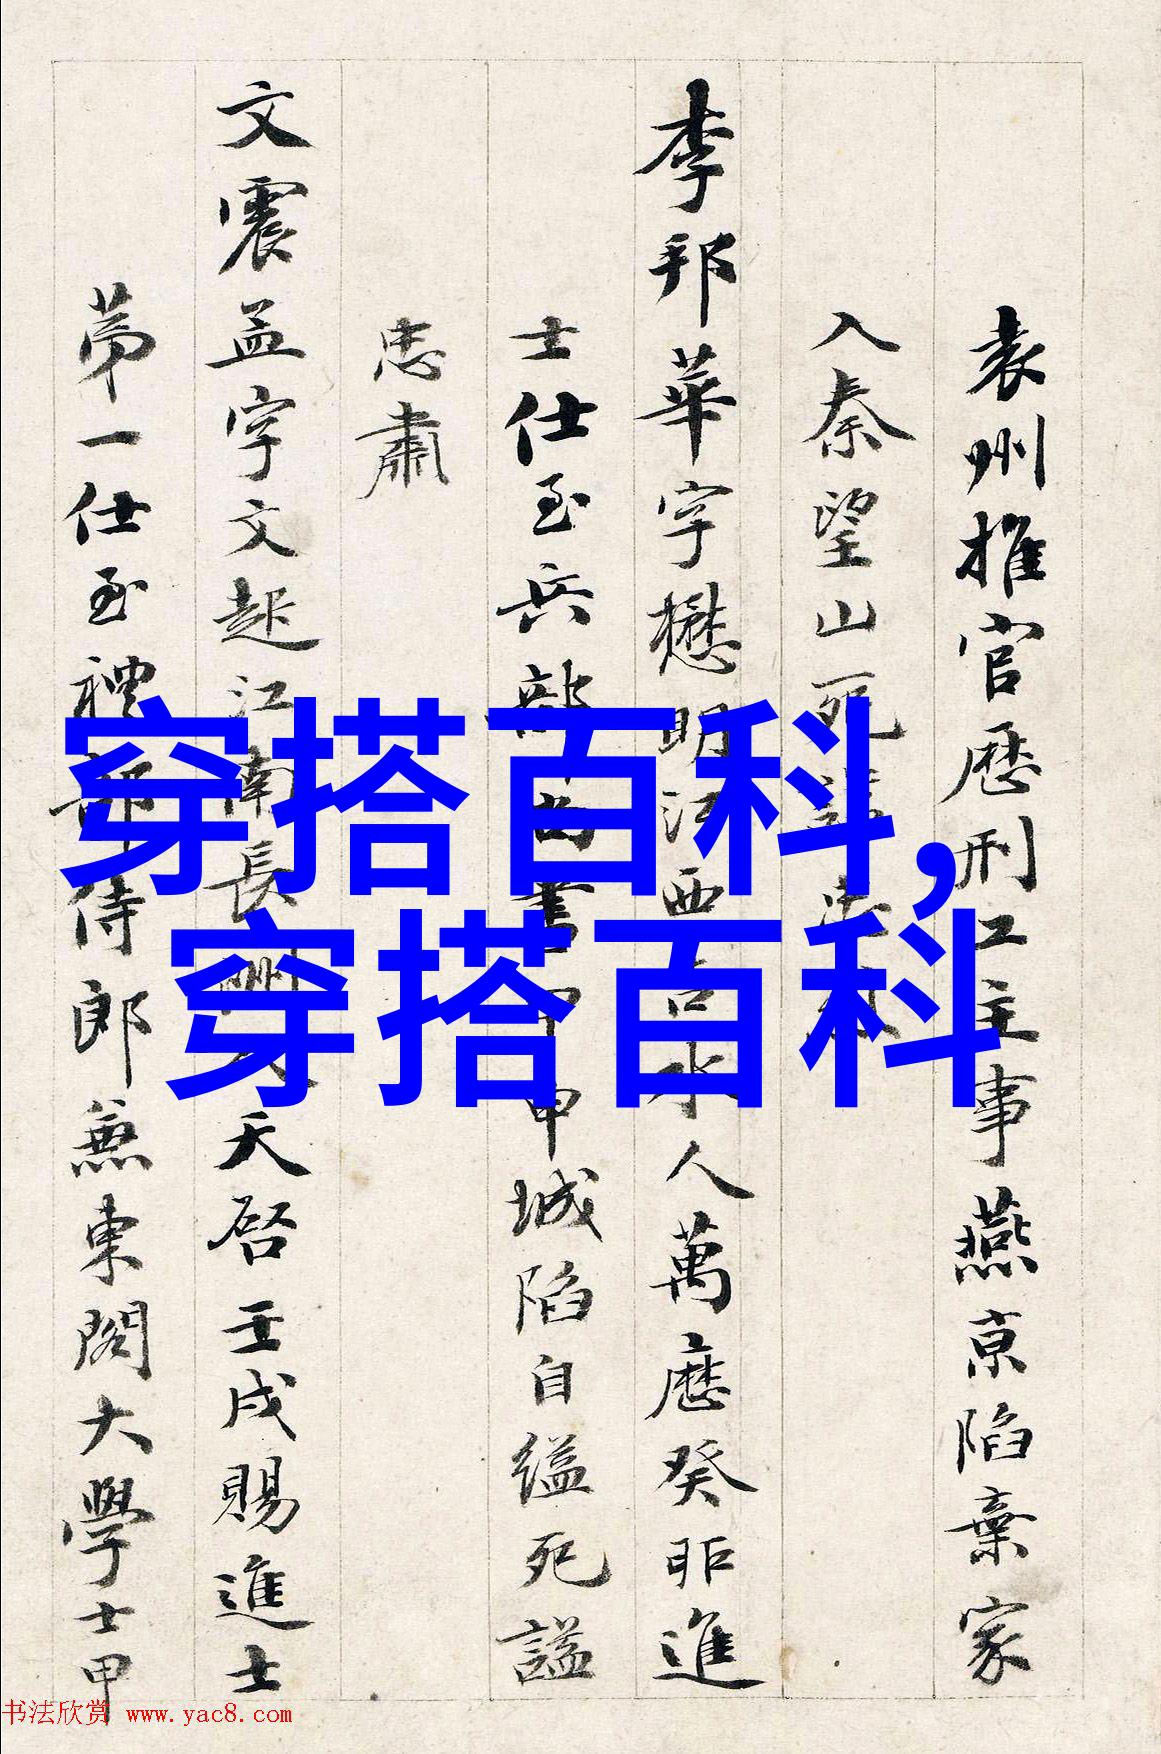 袁州推官歷刑工主事燕京陷棄家
入秦望山死
李邦華字懋明江西吉水人萬歷癸卯進
士仕至兵部尚書甲申城陷自縊死謚
忠肅
文震孟字文起江南長洲人天啓壬戌賜進士
第一仕至禮部侍郎兼東閣大學士甲
穿搭百科,
穿搭百科
书法欣赏 www.yac8.com